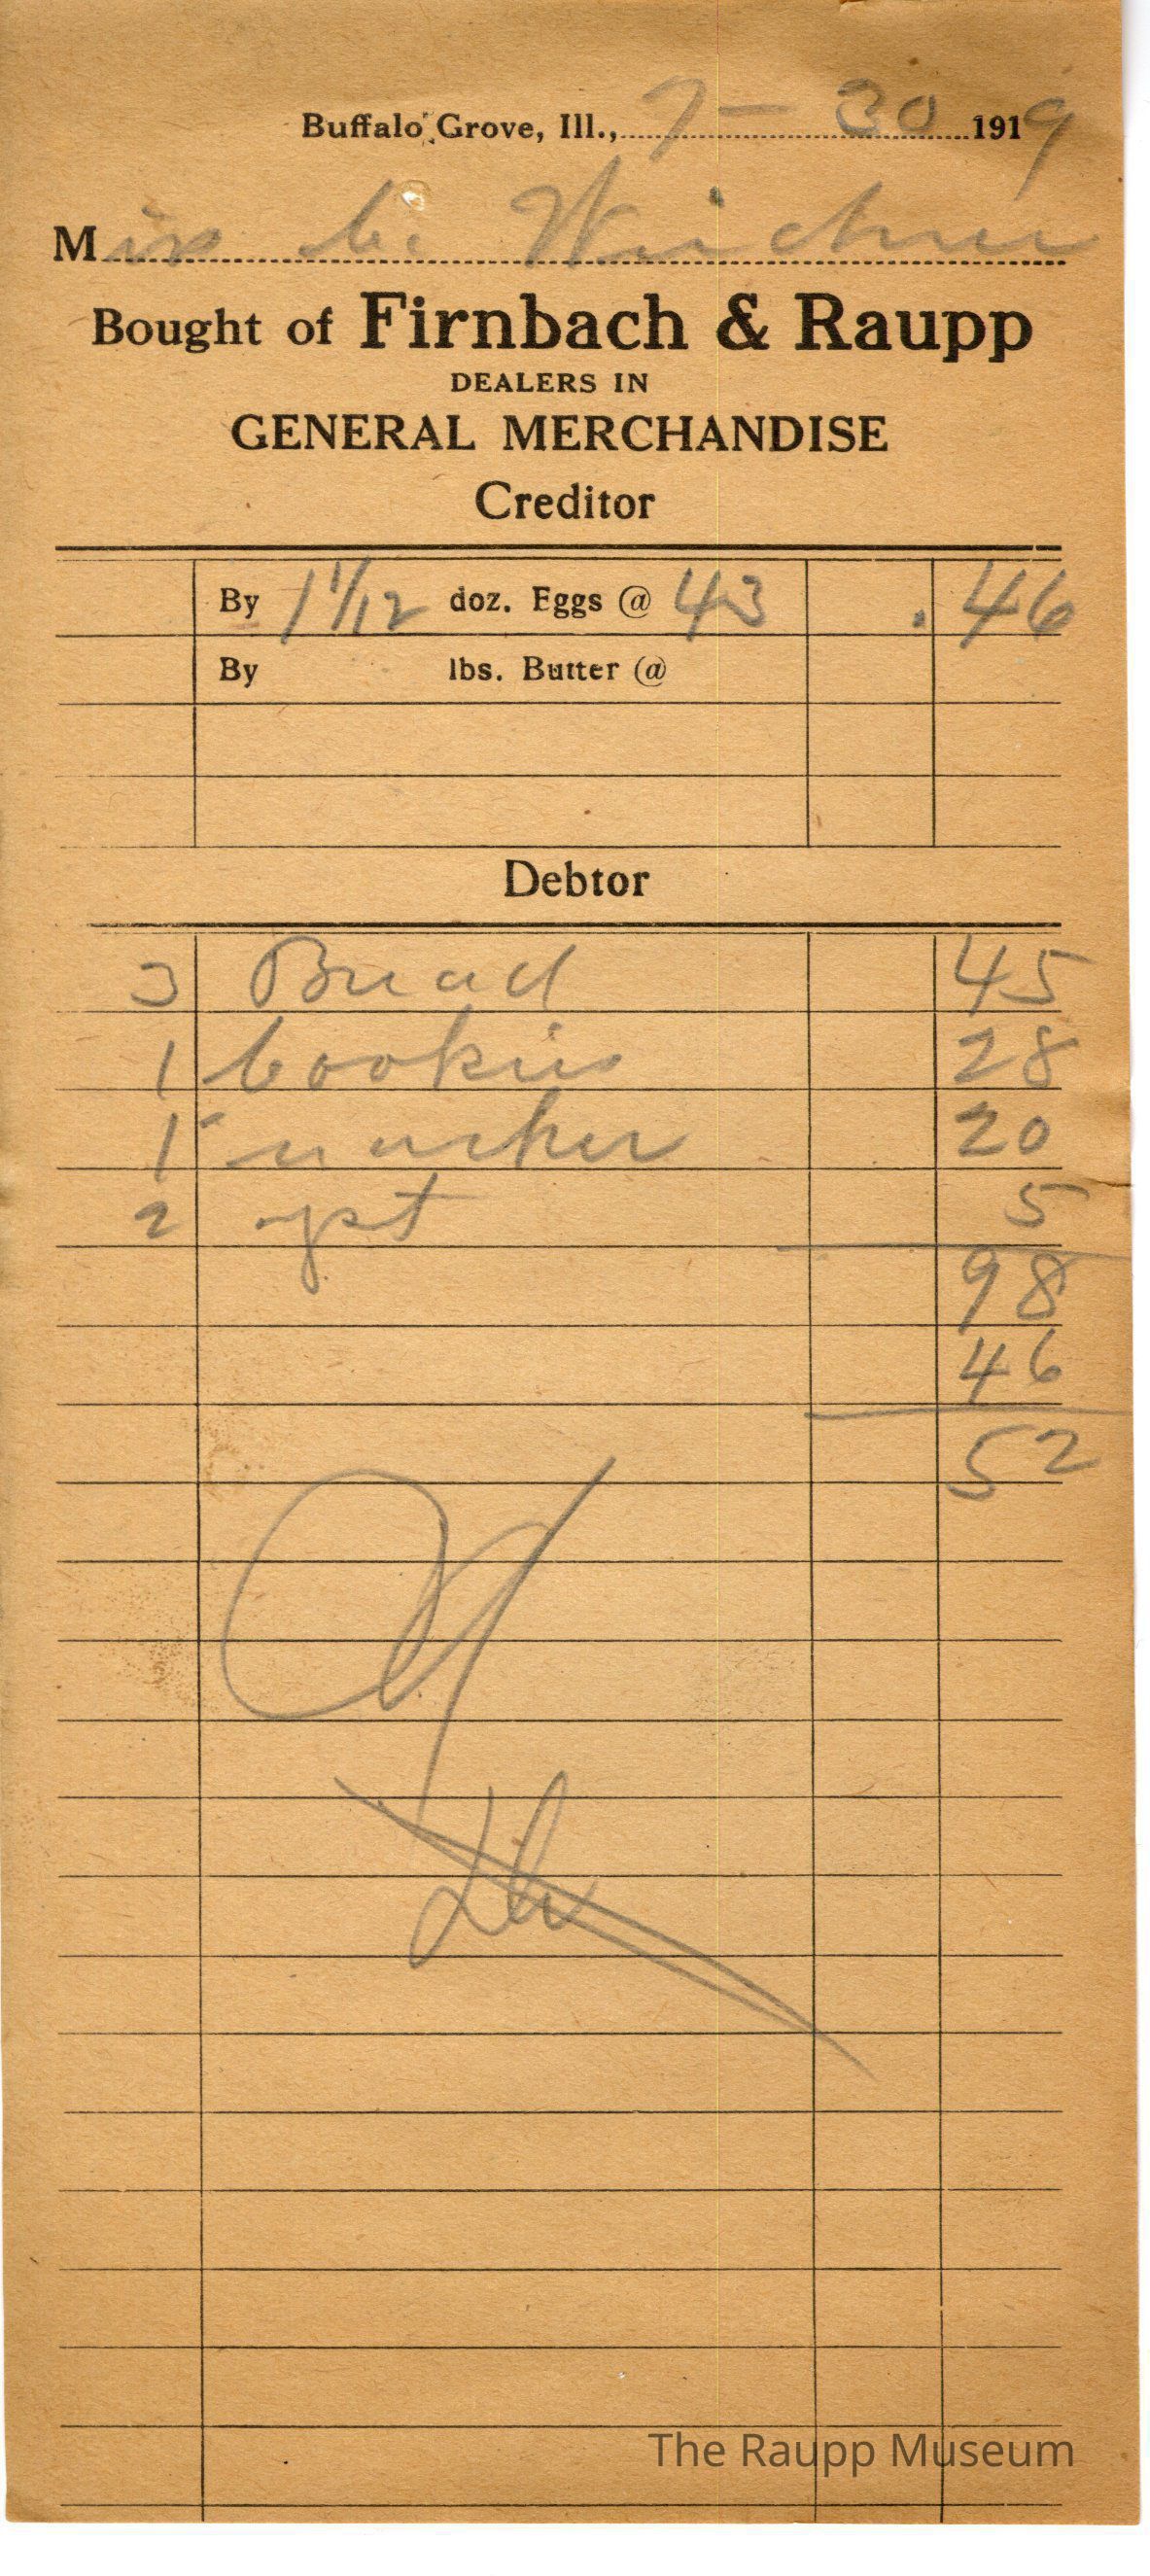 Buffalo Grove, Ill., 7 - 30 1919
Miss C. Weichner
Bought of Firnbach & Raupp
DEALERS IN
GENERAL MERCHANDISE
Creditor
By 1 1/12 doz. Eggs @ 43 .46
By lbs. Butter @
Debtor
3 Bread 45
1 Cookies 28
1 20
2 yst 5
98
46
52
The Raupp Museum